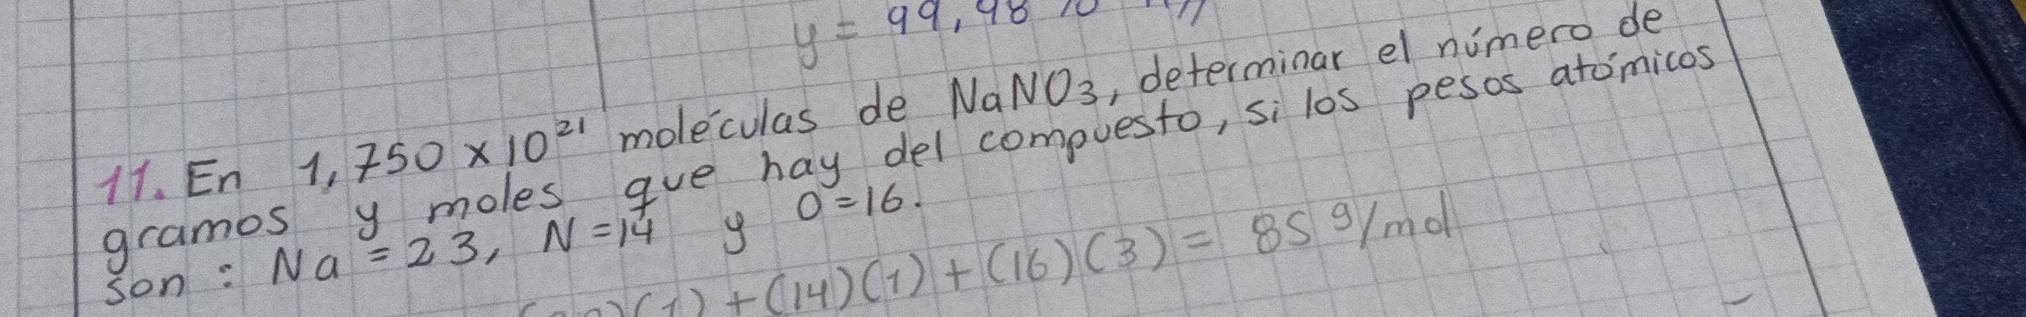 y = 99,98
11. En 1,750 x 10²¹ moléculas de NaNO3, determinar el número de
gramos y moles que hay del compuesto, si los pesos atómicos
son: Na = 23, N = 14 y O = 16.
)(1) + (14)(1) + (16)(3) = 85 g/mol